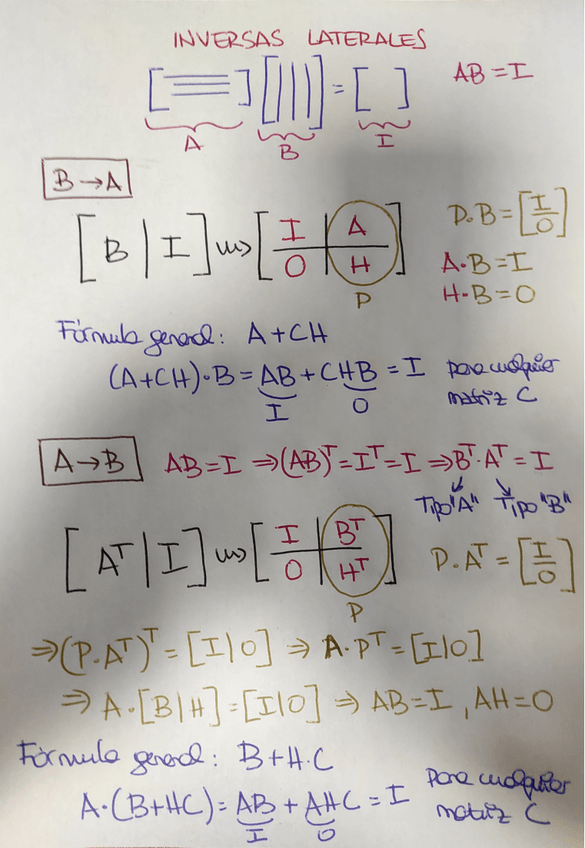 INVERSAS LATERALES
[≡] [|||] = [ ]   AB = I
A   B   I
B → A
[B | I] ⇝ [I | A / O | H]   P·B = [I / O]
P   A·B = I
H·B = O
Fórmula general: A + CH
(A+CH)·B = AB + CHB = I   para cualquier
I   O   matriz C
A → B   AB = I ⇒ (AB)ᵀ = Iᵀ = I ⇒ Bᵀ·Aᵀ = I
Tipo "A"   Tipo "B"
[Aᵀ | I] ⇝ [I | Bᵀ / O | Hᵀ]   P·Aᵀ = [I / O]
P
⇒ (P·Aᵀ)ᵀ = [I | O] ⇒ A·Pᵀ = [I | O]
⇒ A·[B | H] = [I | O] ⇒ AB = I, AH = O
Fórmula general: B + H·C
A·(B+HC) = AB + AHC = I   para cualquier
I   O   matriz C